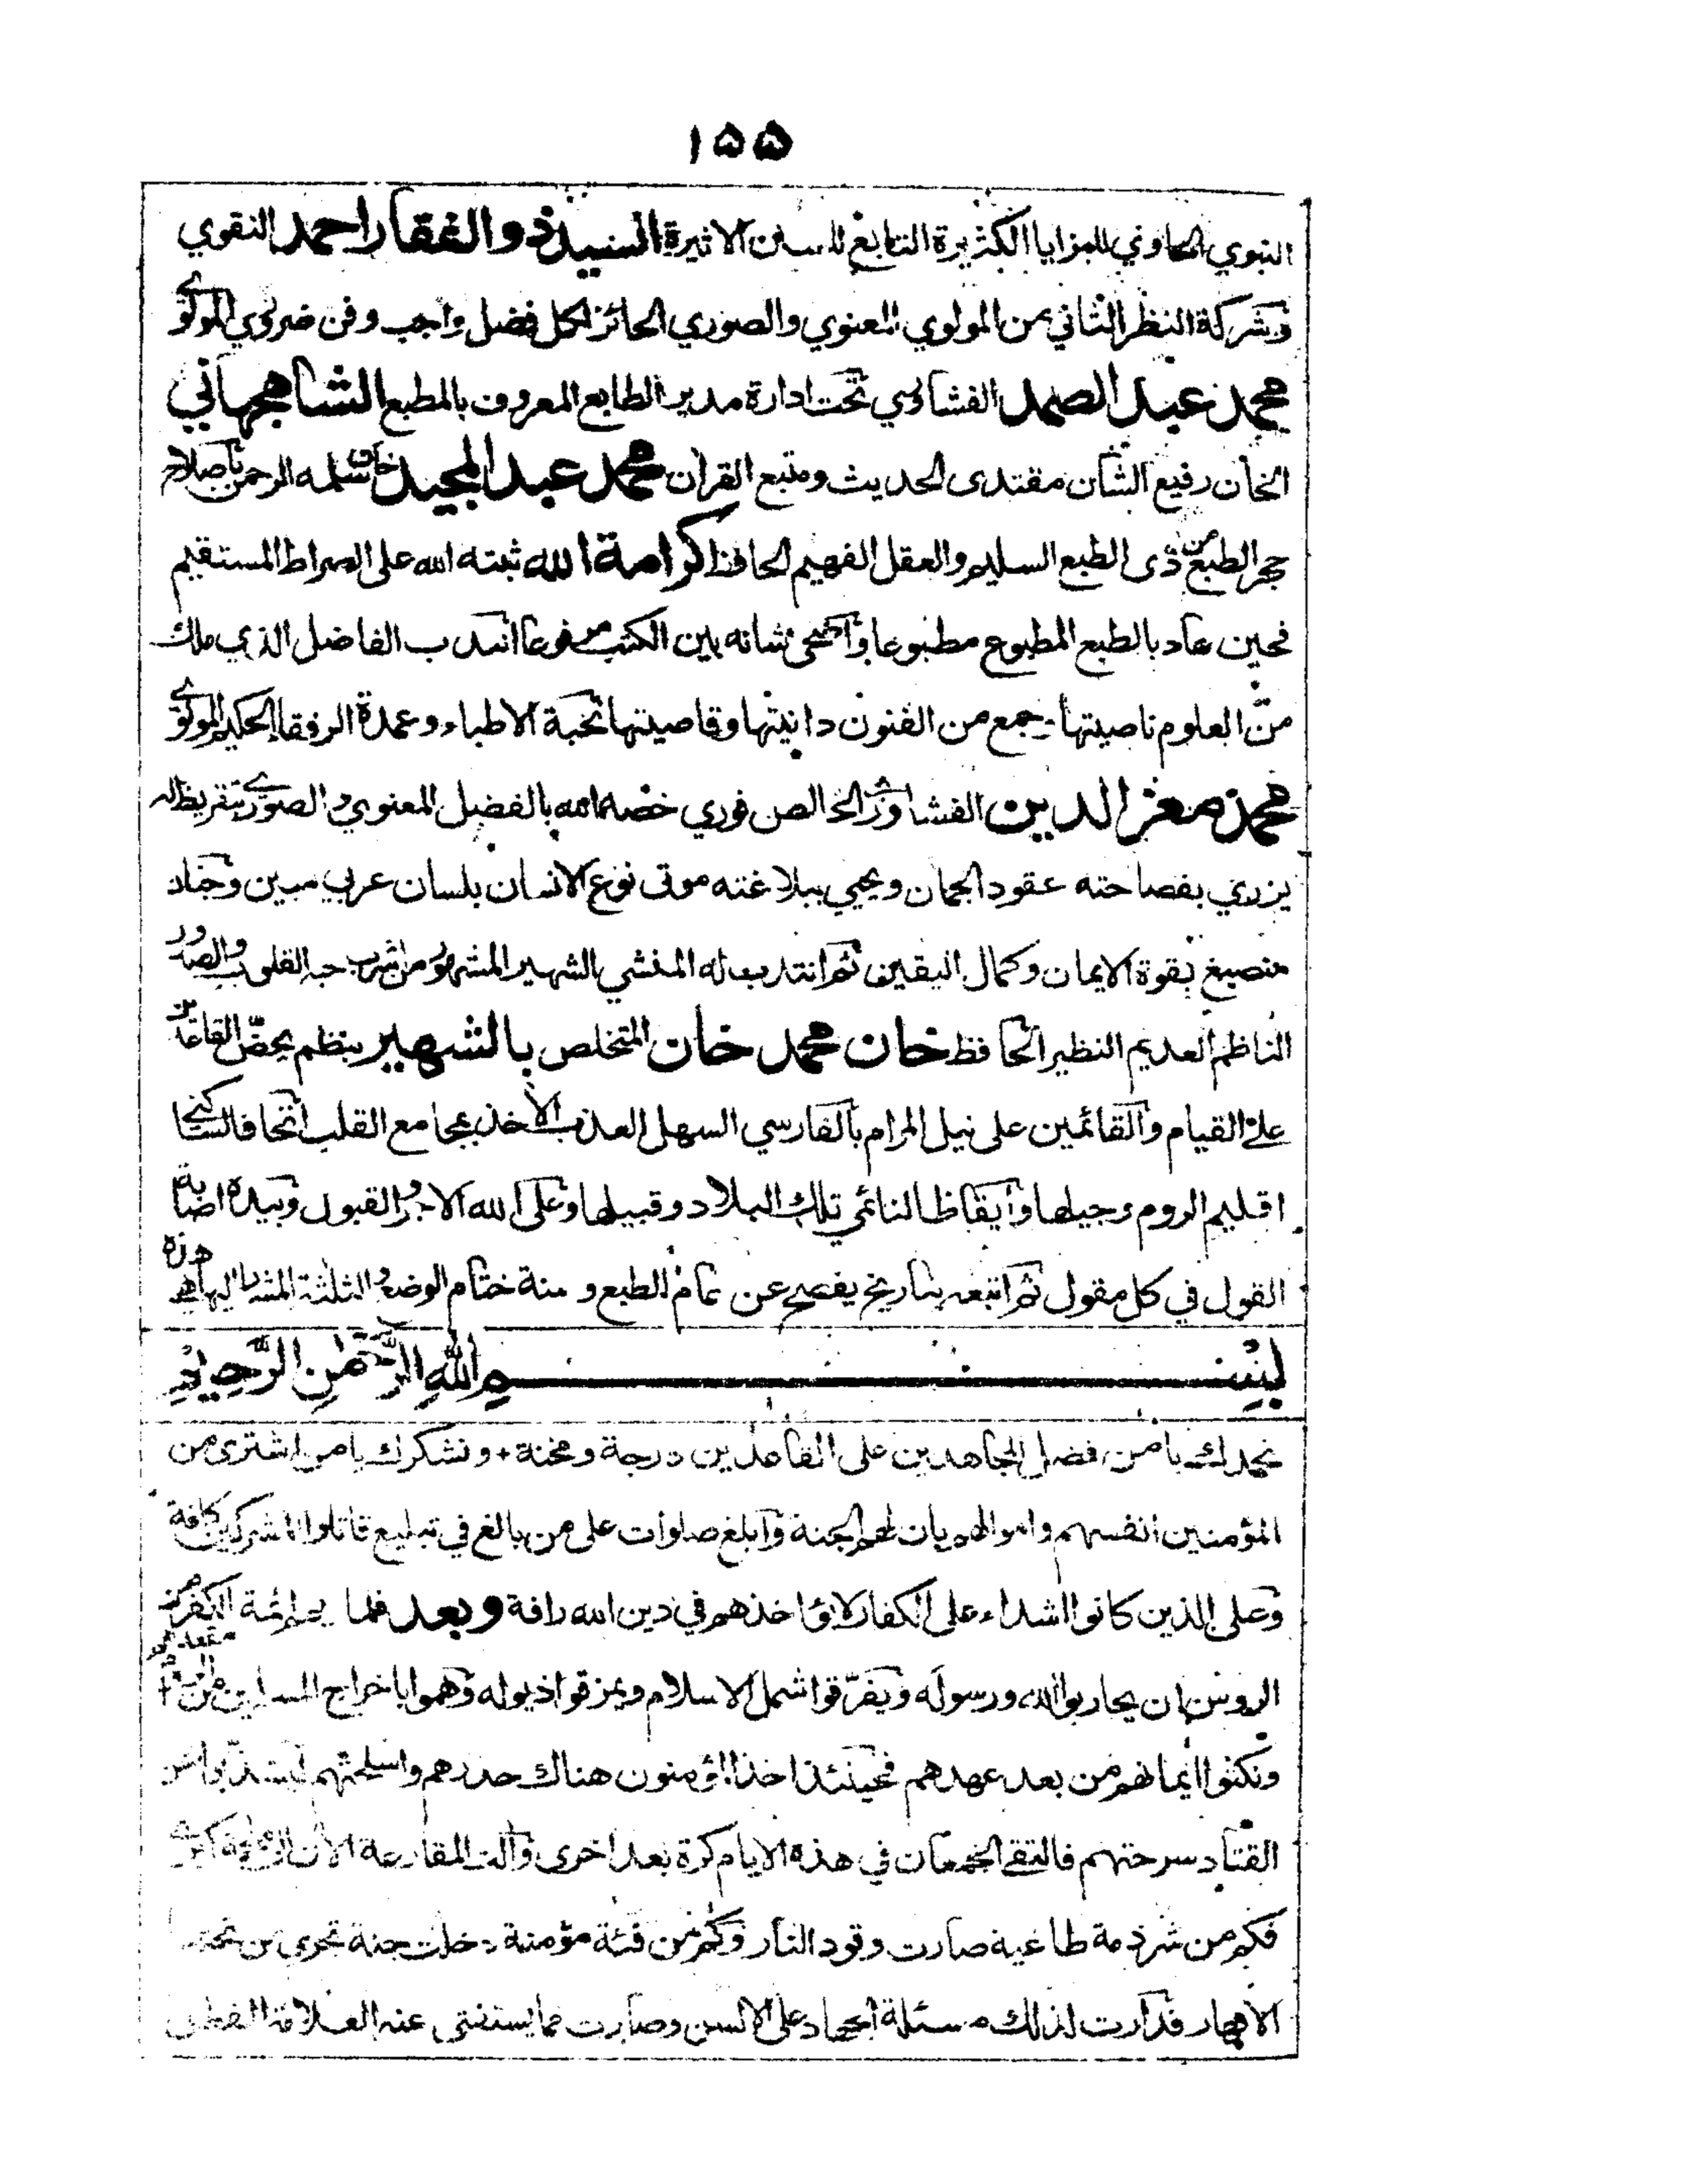 ١٥٥
النبوي الحاوي للمزايا الكثيرة التابع للسنن الاثيرة السيد ذو الفقار احمد النقوي
وشركة النظر الثاني من المولوي المعنوي والصوري الحائز لكل فضل واجب وفن ضروري المولوي
محمد عبد الصمد الفشاوري تحت ادارة مدير الطابع المعروف بالمطبع الشاهجهاني
الخان رفيع الشان مقتدى الحديث ومتبع القران محمد عبد المجيد خان سلمه الرحمن باصلاح
حجر الطبع من ذى الطبع السليم والعقل الفهيم الحافظ كرامة الله ثبته الله على الصراط المستقيم
فحين عاد بالطبع المطبوع مطبوعا واضحى شانه بين الكتب مرفوعا انتدب الفاضل الذي ملك
من العلوم ناصيتها وجمع من الفنون دانيتها وقاصيتها نخبة الاطباء وعمدة الرفقاء الحكيم المولوي
محمد معز الدين الفشاوري الخالص فوري خصه الله بالفضل المعنوي والصوري بتقريظ له
يزري بفصاحته عقود الجمان ويحيي ببلاغته موتى نوع الانسان بلسان عربي مبين وجنان
منصبغ بقوة الايمان وكمال اليقين ثم انتدب له المنشي الشهير المشهور من اشرب حبه القلوب والصدور
الناظم العديم النظير الحافظ خان محمد خان المتخلص بالشهير بنظم يحضّ القاعدين
على القيام والقائمين على نيل المرام بالفارسي السهل العذب الاخذ بمجامع القلب اتحافا لساكني
اقليم الروم وجيلها وايقاظا لنائمي تلك البلاد وقبيلها وعلى الله الاجر والقبول وبيده اصابة
القول في كل مقول ثم اتبعه بتاريخ يفصح عن تمام الطبع و منة ختام الوضع والثلثة المشار اليها هي هذه
بسم الله الرحمن الرحيم
نحمدك يا من فضل المجاهدين على القاعدين درجة ومحنة + ونشكرك يا من اشترى من
المؤمنين انفسهم واموالهم بان لهم الجنة وابلغ صلوات على من بالغ في تبليغ قاتلوا المشركين كافة
وعلى الذين كانوا اشداء على الكفار لا يؤاخذهم في دين الله رافة وبعد فلما ائمة الكفر من
الروس ان يحاربوا الله ورسوله ويفرّقوا شمل الاسلام ويمزقوا ذيوله وهموا باخراج المسلمين من
ونكثوا ايمانهم من بعد عهدهم فحينئذ اخذ المؤمنون هناك حذرهم واسلحتهم
القتاد سرحتهم فالتقى الجمعان في هذه الايام كرة بعد اخرى والت المقارعة الان
فكم من شرذمة طاغية صارت وقود النار وكم من فئة مؤمنة دخلت جنة تجري من تحتها
الانهار فدارت لذلك مسئلة الجهاد على الالسن وصارت مما يستفتى عنه العلامة